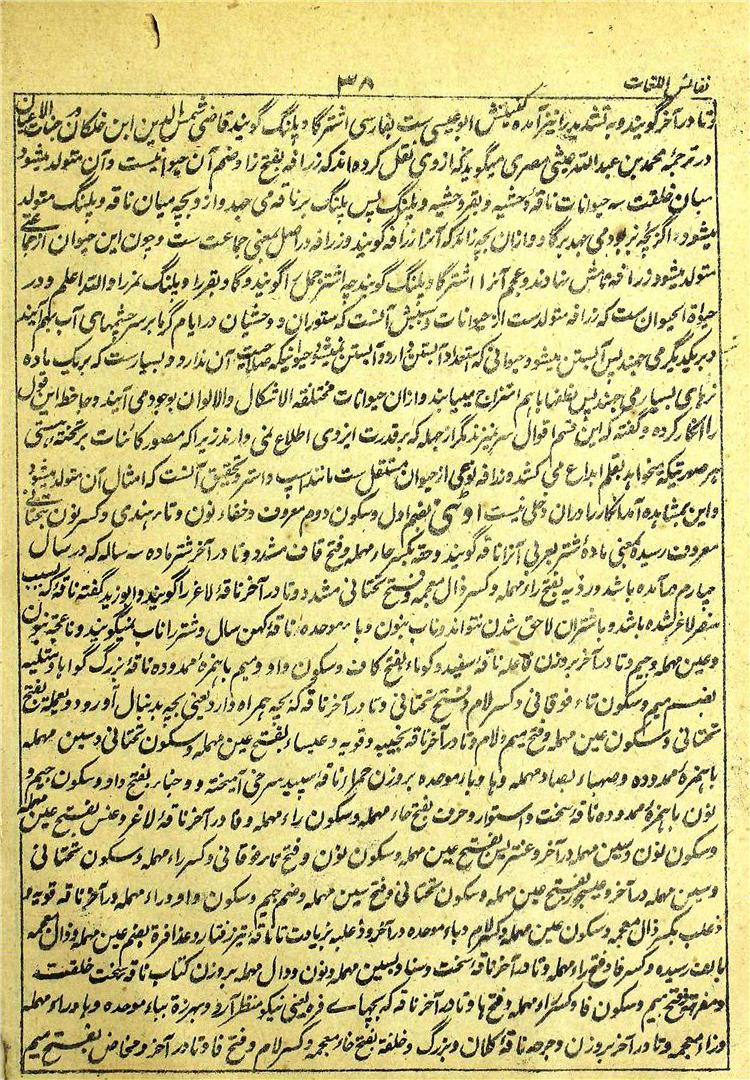 نفائس اللغات
۳۸
وتا در آخر گویند و به تشدید را نیز آمده کنیتش ابو عیسی ست بفارسی اشتر گاو پلنگ گویند قاضی شمس الدین ابن خلکان در
در ترجمهٔ محمد بن عبدالله مصری میگوید که از وی نقل کرده‌اند که زرافه بفتح زا و ضم آن حیوانیست و آن متولد میشود
میان خلقت سه حیوانات ناقهٔ وحشیه و بقر وحشیه و پلنگ پس پلنگ بر ناقه می جهد و از و بچه میان ناقه و پلنگ متولد
میشود و اگر بچه نر بود می جهد بر گاو و ازان بچه زاند که آنرا زرافه گویند و زرافه در اصل بمعنی جماعت ست و چون این حیوان از
متولد میشود زرافه نامش نهادند و عجم آنرا اشتر گاو پلنگ گویند چه اشتر جمل را گویند و گاو بقر را و پلنگ نمر را والله اعلم و در
حیوة الحیوان ست که زرافه متولد ست از حیوانات و سببش آنست که ستوران و وحشیان در ایام گرما بر سر چشمهای آب بهم آیند
و بر یکدیگر می جهند پس آبستن میشود حیوانی که استعداد آبستن دارد و آبستن نمیشود حیوانیکه صلاحیت آن ندارد و بسیار ست که بر یک ماده
نرهای بسیار می جهند پس نطفها باهم امتزاج مییابند و ازان حیوانات مختلفة الاشکال والالوان بوجود می آیند و جاحظ این قول
را انکار کرده و گفته که این قسم اقوال سر نیزند مگر از جهله که بر قدرت ایزدی اطلاع نمی دارند زیرا که مصور کائنات بر تختهٔ هستی
هر صورتیکه میخواهد بقلم ابداع می کشد و زرافه نوعی از حیوان مستقل ست مانند اسپ و استر و تحقیق آنست که امثال آن متولد میشود
و این بمشاهده آمده انکار را دران دخلی نیست اونٹنی بضم اول و سکون دوم معروف و خفاء نون و تاء هندی و کسر نون تحتانی
معروف رسیده بمعنی مادهٔ شتر بعربی آنرا ناقه گویند و حقه بکسر حاء مهمله و فتح قاف مشدد و تا در آخر شتر ماده سه ساله که در سال
چهارم درآمده باشد و رذیه بفتح راء مهمله و کسر ذال معجمه و فتح تحتانی مشدد و تا در آخر ناقهٔ لاغر را گویند و ابوزید گفته ناقهٔ که بسبب
سفر لاغر شده باشد و با شتران لاحق شدن نتواند و ناب بنون و باء موحده ناقهٔ کهن سال و شتر را ناب نمیگویند و ناعجه بنون
و عین مهمله و جیم و تا در آخر بروزن فاعله ناقهٔ سفید و کوماء بفتح کاف و سکون واو و میم با همزهٔ ممدوده ناقهٔ بزرگ کوهان و متلیه
بضم میم و سکون تاء فوقانی و کسر لام و فتح تحتانی و تا در آخر ناقه که بچه همراه دارد یعنی بچه بدنبال او رود و یعمله بفتح
تحتانی و سکون عین مهمله و فتح میم و لام و تا در آخر ناقه نجیبه و قویه و عیساء بفتح عین مهمله و سکون تحتانی و سین مهمله
با همزهٔ ممدوده و صهباء بصاد مهمله و ها و باء موحده بروزن حمراء ناقهٔ سپید سرخی آمیخته و وجناء بفتح واو و سکون جیم و
نون با همزهٔ ممدوده ناقهٔ سخت و استوار و حرف بفتح حاء مهمله و سکون راء مهمله و فا در آخر ناقهٔ لاغر و عنس بفتح عین مهمله
و سکون نون و سین مهمله در آخر و عنتریس بفتح عین مهمله و سکون نون و فتح تاء فوقانی و کسر راء مهمله و سکون تحتانی
و سین مهمله در آخر و عیسجور بفتح عین مهمله و سکون تحتانی و فتح سین مهمله و ضم جیم و سکون واو و راء مهمله در آخر ناقه قویه و
ذعلب بکسر ذال معجمه و سکون عین مهمله و کسر لام و باء موحده در آخر و ذعلبه بزیادت تا ناقهٔ تیز رفتار و عذافره بضم عین مهمله و ذال معجمه
بالف رسیده و کسر فا و فتح راء مهمله و تا در آخر ناقهٔ سخت و سناد بسین مهمله و نون و دال مهمله بروزن کتاب ناقهٔ سخت خلقت
و مفرهه بضم میم و سکون فا و کسر راء مهمله و فتح ها و تا در آخر ناقه که بچهای فره یعنی نیکو منظر آرد و بهزره بباء موحده و ها و راء مهمله
و زاء معجمه و تا در آخر بروزن و جرعه ناقهٔ کلان و بزرگ و خلفه بفتح خاء معجمه و کسر لام و فتح فا و تا در آخر و مخاض بفتح میم